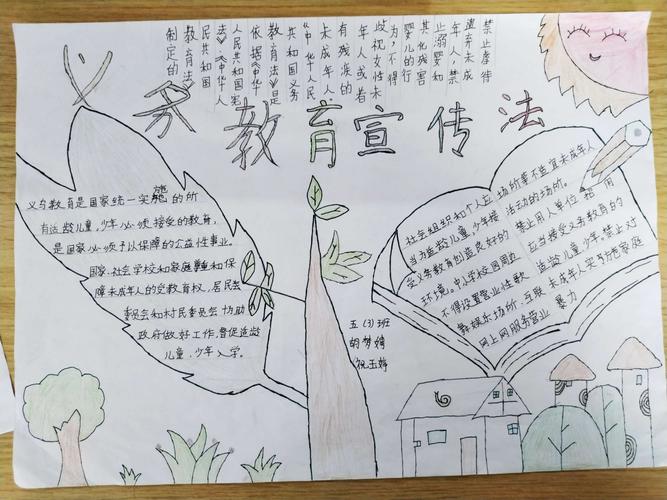 禁止虐待
遗弃未成
年人，禁
止溺婴和
其他残害
婴儿的行
为，不得
歧视女性未
年人或者
有残疾的
未成年人
《中华人民
共和国义务
教育法》是
依据《中华
人民共和国宪
法》《中华人
民共和国
教育法》
制定的
义务教育宣传法
义务教育是国家统一实施的所
有适龄儿童、少年必须接受的教育，
是国家必须予以保障的公益性事业。
国家、社会学校和家庭和保
障未成年人的受教育权，居民委
委员会和村民委员会协助
政府做好工作，督促适龄
儿童、少年入学。
社会组织和个人应
当为适龄儿童、少年接
受义务教育创造良好的
环境。中小学校园周边
不得设置营业性歌
舞娱乐场所、互联
网上网服务营业
场所等不适宜未成年人
活动的场所。
禁止用人单位招用
应当接受义务教育的
适龄儿童、少年。禁止对
未成年人实施家庭
暴力
五(3)班
胡梦婷
祝玉婷